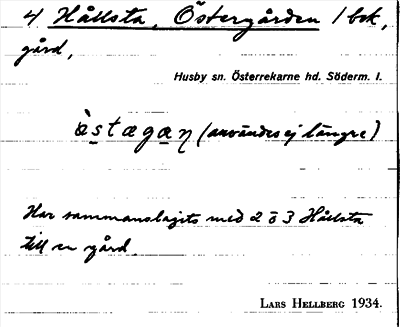 4 Hållsta, Östergården 1 bek,
gård,
Husby sn. Österrekarne hd. Söderm. l.
(användes ej längre)
Har sammanslagits med 2 o 3 Hållsta
till en gård.
LARS HELLBERG 1934.